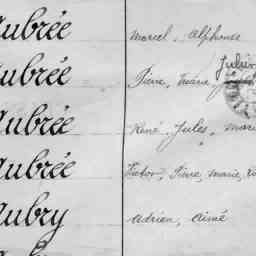 Aubrée Marcel, Alphonse
Julien
Aubrée Pierre, Marie
Aubrée René, Jules, Marie
Aubrée Victor, Pierre, marie,
Aubry Adrien, Aimé